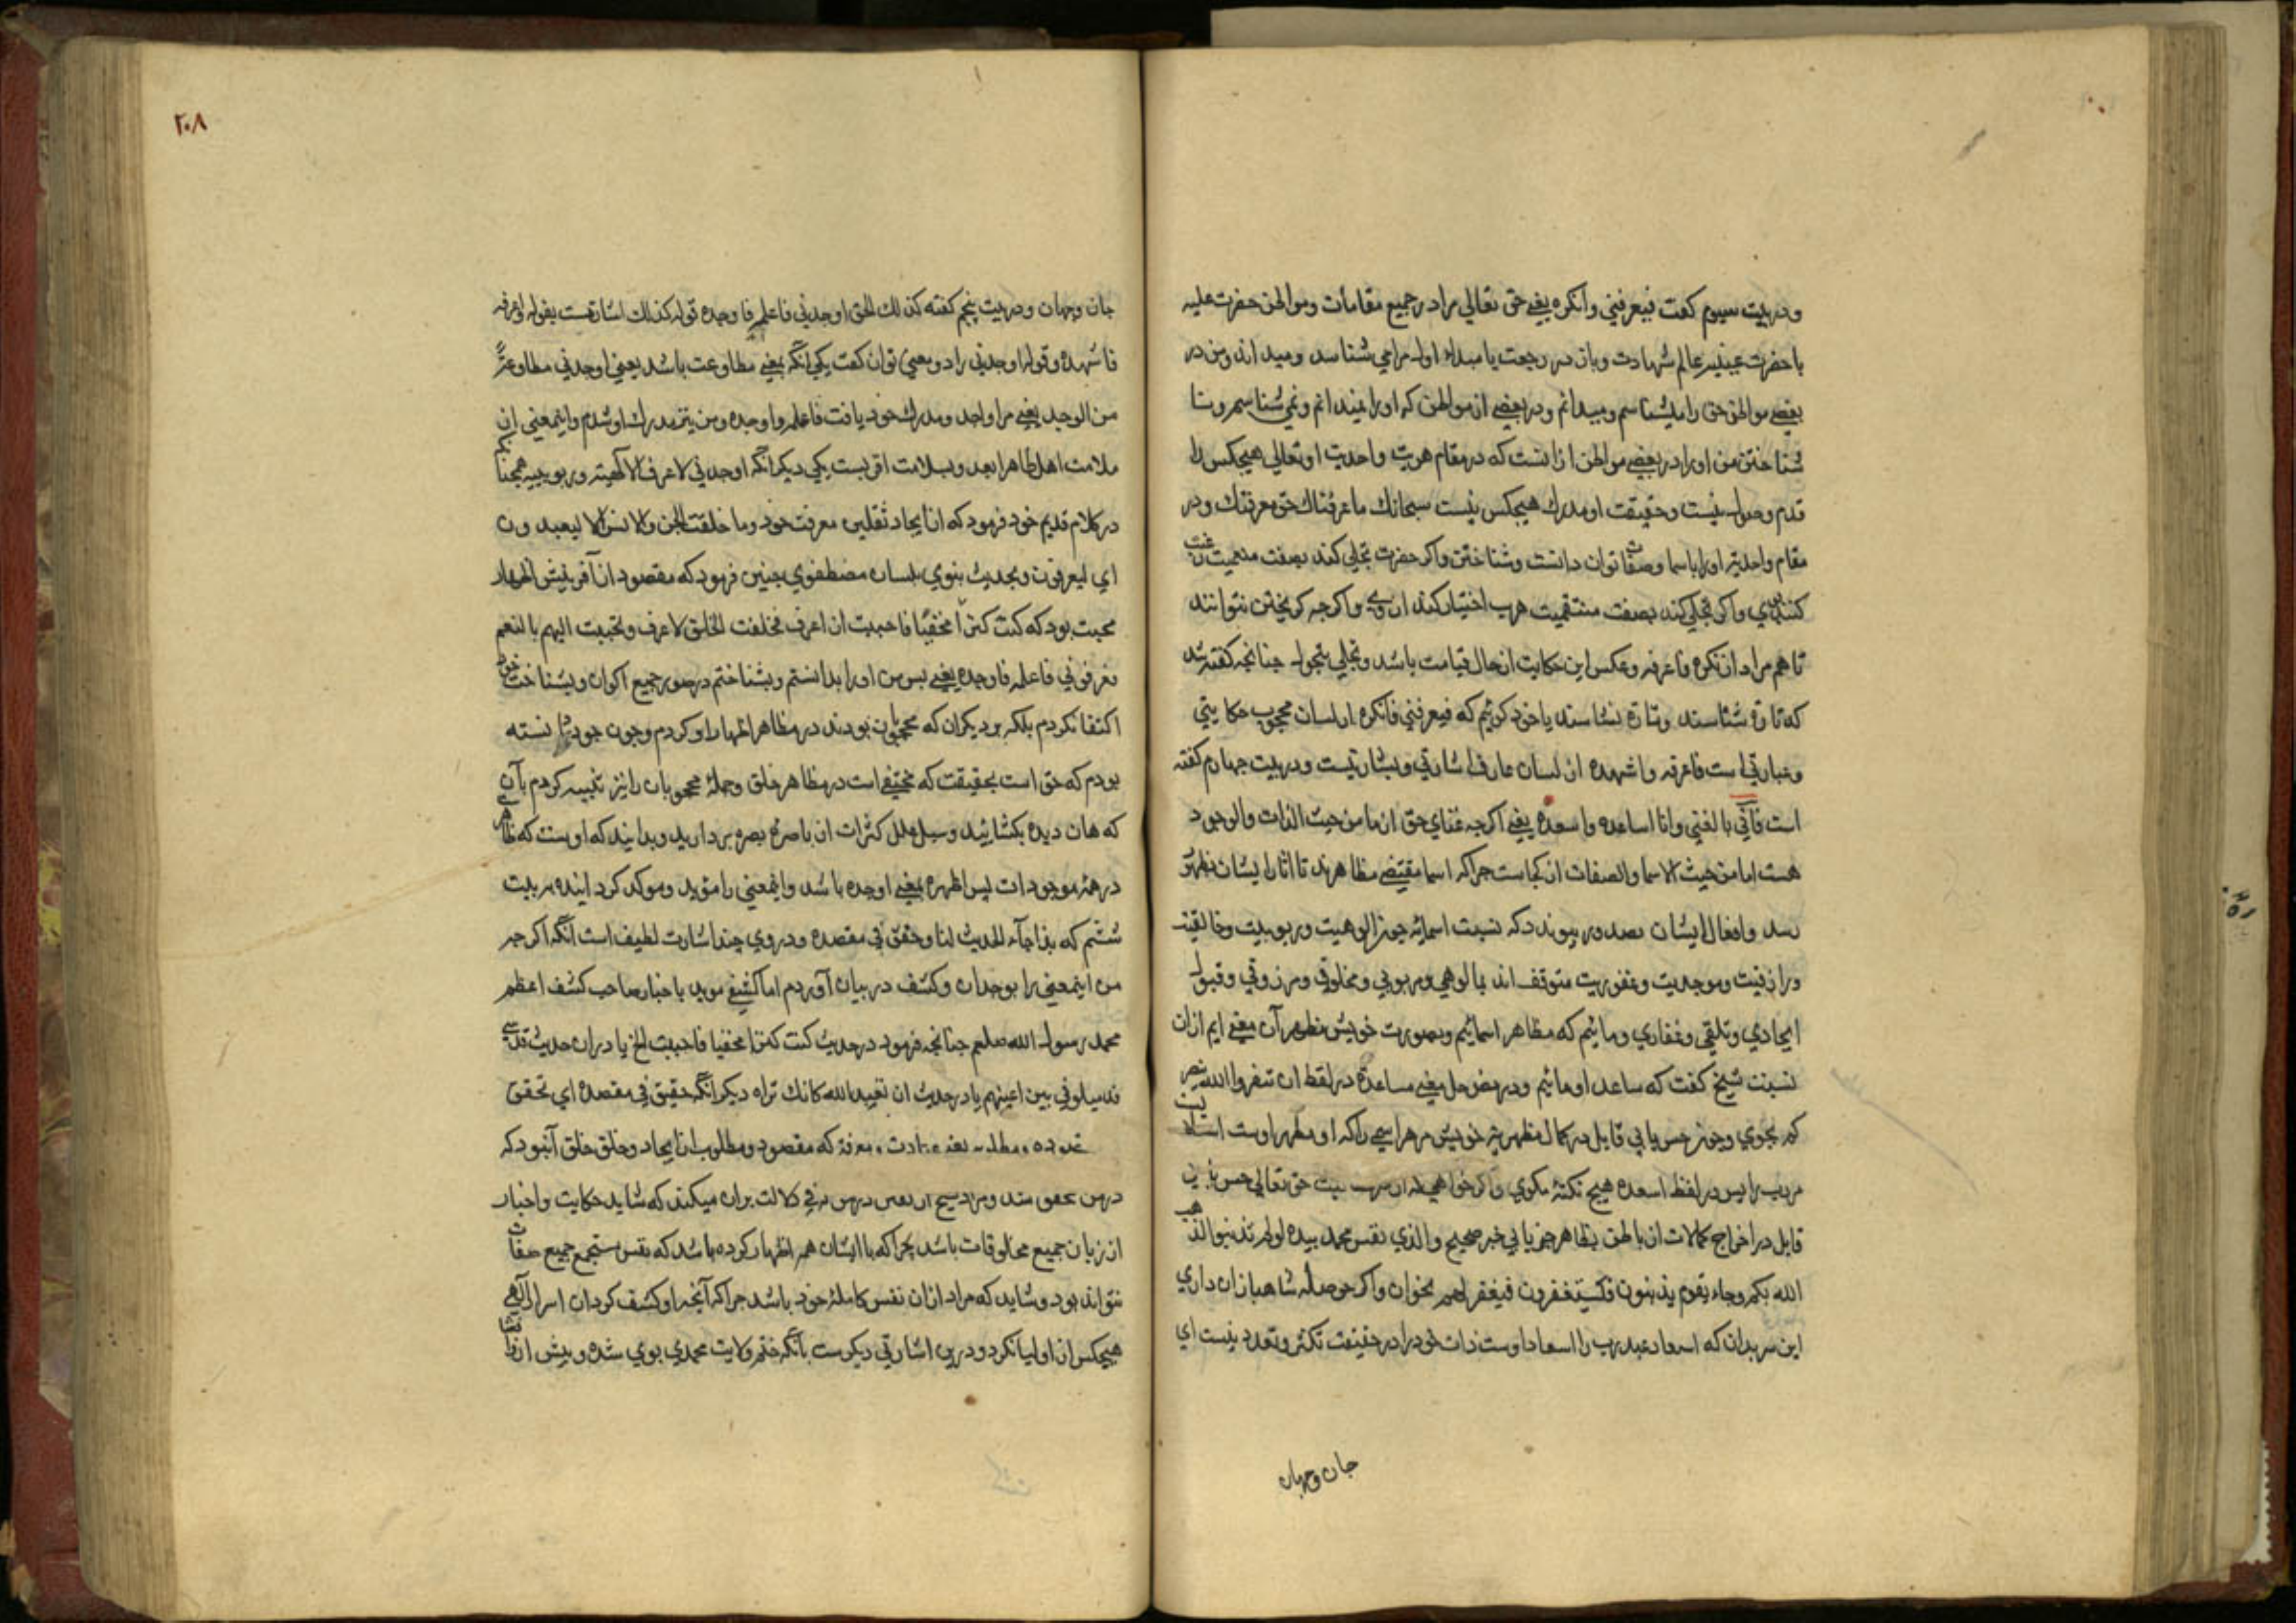 ودر بیت سیوم کفت فیعرفني وانکره یعني حق تعالی مرا در جمیع مقامات ومواطن حضرت علیه
با حضرت عینیه عالم شهادت وباز در رجعت با مبداء اول مرا می شناسد ومیداند ومن در
بعضی مواطن حق را میشناسم ومیدانم ودر بعضی از مواطن که او را نمیدانم ونمی شناسم ونا
شناختن من او را در بعضی مواطن از آنست که در مقام هویت واحدیت او تعالی هیچکس را
قدم وصول نیست وحقیقت او مدرک هیچکس نیست سبحانک ما عرفناک حق معرفتک ودر
مقام واحدیة او را باسما وصفات توان دانست وشناختن واکر حضرت تجلی کند بصفت منعمیت رغبت
کنند بوی واکر تجلی کند بصفت منتقمیت هرب اختیار کنند از وی واکرچه کریختن نتوانند
تا هم مراد از نکره واعرفه وعکس این حکایت از حال قیامت باشد وتجلی بتحول چنانچه کفته شد
که تارة شناسند وتارة نشناسند یا خود کوئیم که فیعرفني فانکره از لسان محجوب حکایتي
وعبارتي است فاعرفه واشهده از لسان عارف اشارتي وبشارتیست ودر بیت چهارم کفته
است فآنّي بالغني وانا اساعده واسعده یعني اکرچه غنای حق از ما من حیث الذات والوجود
هست اما من حیث الاسما والصفات از کجاست چرا که اسما مقتضی مظاهرند تا آثار ایشان بظهور
رسد وافعال ایشان بصدور پیوندد که نسبت اسمائیه چون الوهیت وربوبیت وخالقیت
ورازقیت وموجدیت وغفوریت متوقف اند بمالوهي ومربوبي ومخلوقي ومرزوقي وقبول
ایجادي وتلقي وغفاري ومائیم که مظاهر اسمائیم وبصورت خویش مظهر آن معنی ایم ازان
نسبت شیخ کفت که ساعد او مائیم ودر بعض حل معنی مساعدة در لفظ ان تنصروا الله ینصر
کم بجوي وچون حسن یابی قابل در کمال مظهریة خویش مر هر اسمی را که او مظهر اوست استاد
مربب را پس در لفظ اسعده هیچ نکتة مکوي واکر خواهي که از حق تعالی حسن یابی
قابل در اخراج کمالات از باطن بظاهر جز یابی خبر صحیح والذي نفس محمد بیده لو لم تذنبوا لذهب
الله بکم وجاء بقوم یذنبون فیستغفرون فیغفر لهم بخوان واکر حوصله شاهبازان داري
این سر بدان که اسعاد عبد رب را اسعاد اوست ذات خود را در حقیقت تکثر وتعدد نیست ای
جان وجهان
٢٠٨
جان وجهان ودر بیت پنجم کفته کذلك الحق اوجدني فاعلمه فاوجده قوله کذلك اشارتست بقوله واعرفه
فاشهده وقوله اوجدني را دو معنی توان کفت یکی آنکه بمعنی مطاوعت باشد یعني اوجدني مطاوعة
من الوجد یعني مرا واجد ومدرک خود یافت فاعلمه واوجده ومن نیز مدرک او شدم واینمعنی از
ملامت اهل ظاهر ابعد وبسلامت اقربست یکی دیکر آنکه اوجدني لاعرف الالهیة وربوبیة همچنانکه
در کلام قدیم خود فرمود که از ایجاد ثقلین معرفت خود وما خلقت الجن والانس الا لیعبدون
ای لیعرفون وبحدیث نبوي بلسان مصطفوي چنین فرمود که مقصود از آفرینش اظهار
محبت بود که کنت کنزا مخفیّا فاحببت ان اعرف فخلقت الخلق لاعرف وتحببت الیهم بالنعم
فعرفوني فاعلمه فاوجده یعنی پس من او را بدانستم وبشناختم در صور جمیع اکوان وبشناخت خود
اکتفا نکردم بلکه بر دیکران که محجوبان بودند در مظاهر اظهار او کردم وچون خود دانسته
بودم که حق است بحقیقت که مختفی است در مظاهر خلق وجملة محجوبان را نیز تنبیه کردم بآن
که هان دیده بکشائید وسبل ظلل کثرات از باصرة بصره بردارید وبدانید که اوست که ظاهر
در همه موجودات پس اظهره بمعنی اوجده باشد واینمعنی را مؤید وموکد کرد اینده بربیت
ششم که بذا جآء الحدیث لنا وحقق في مقصده ودر وي چند اشارت لطیف است آنکه اکرچه
من اینمعنی را بوجدان وکشف در بیان آوردم اما کشفی موید باخبار صاحب کشف اعظم
محمد رسول الله صلعم چنانچه فرمود در حدیث کنت کنزا مخفیا فاحببت الخ یا در ان حدیث قدسی
قد مثلوني بین اعینهم یا در حدیث ان تعبد الله کانك تراه دیکر آنکه حقیق في مقصده ای تحقق
عبادت ومعرفة که مقصود ومطلوب از ایجاد وخلق خلق آنبود که
در من محقق شد دلالت بران میکند که شاید حکایت واخبار
از زبان جمیع مخلوقات باشد چرا که با ایشان هم اظهار کرده باشد که نفس مستجمع جمیع صفات
نتواند بود وشاید که مراد ازان نفس کاملة خود باشد چرا که آنچه او کشف کردان اسرار الهی
هیچکس از اولیا نکرد ودرین اشارتي دیکرست بآنکه ختم ولایت محمدي بوي شده وبیش از